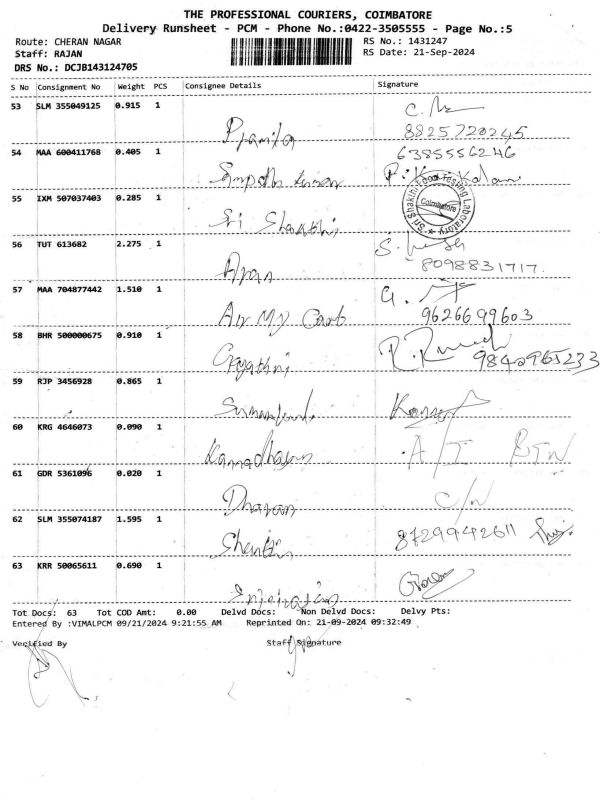 THE PROFESSIONAL COURIERS, COIMBATORE
Delivery Runsheet - PCM - Phone No.:0422-3505555 - Page No.:5
Route: CHERAN NAGAR RS No.: 1431247
Staff: RAJAN RS Date: 21-Sep-2024
DRS No.: DCJB143124705
S No Consignment No Weight PCS Consignee Details Signature
53 SLM 355049125 0.915 1
Pramila 8825720245
54 MAA 600411768 0.405 1 6385556246
55 IXM 507037403 0.285 1
Sri Shakthi Food Testing Laboratory Coimbatore
Sri Shakthi
56 TUT 613682 2.275 1
8098831717
57 MAA 704877442 1.510 1
9626699603
58 BHR 500000675 0.910 1
Gayathri 9842965233
59 RJP 3456928 0.865 1
60 KRG 4646073 0.090 1
A/I
61 GDR 5361096 0.020 1
Dharan C/N
62 SLM 355074187 1.595 1
8729942611
63 KRR 50065611 0.690 1
Tot Docs: 63 Tot COD Amt: 0.00 Delvd Docs: Non Delvd Docs: Delvy Pts:
Entered By :VIMALPCM 09/21/2024 9:21:55 AM Reprinted On: 21-09-2024 09:32:49
Verified By Staff Signature